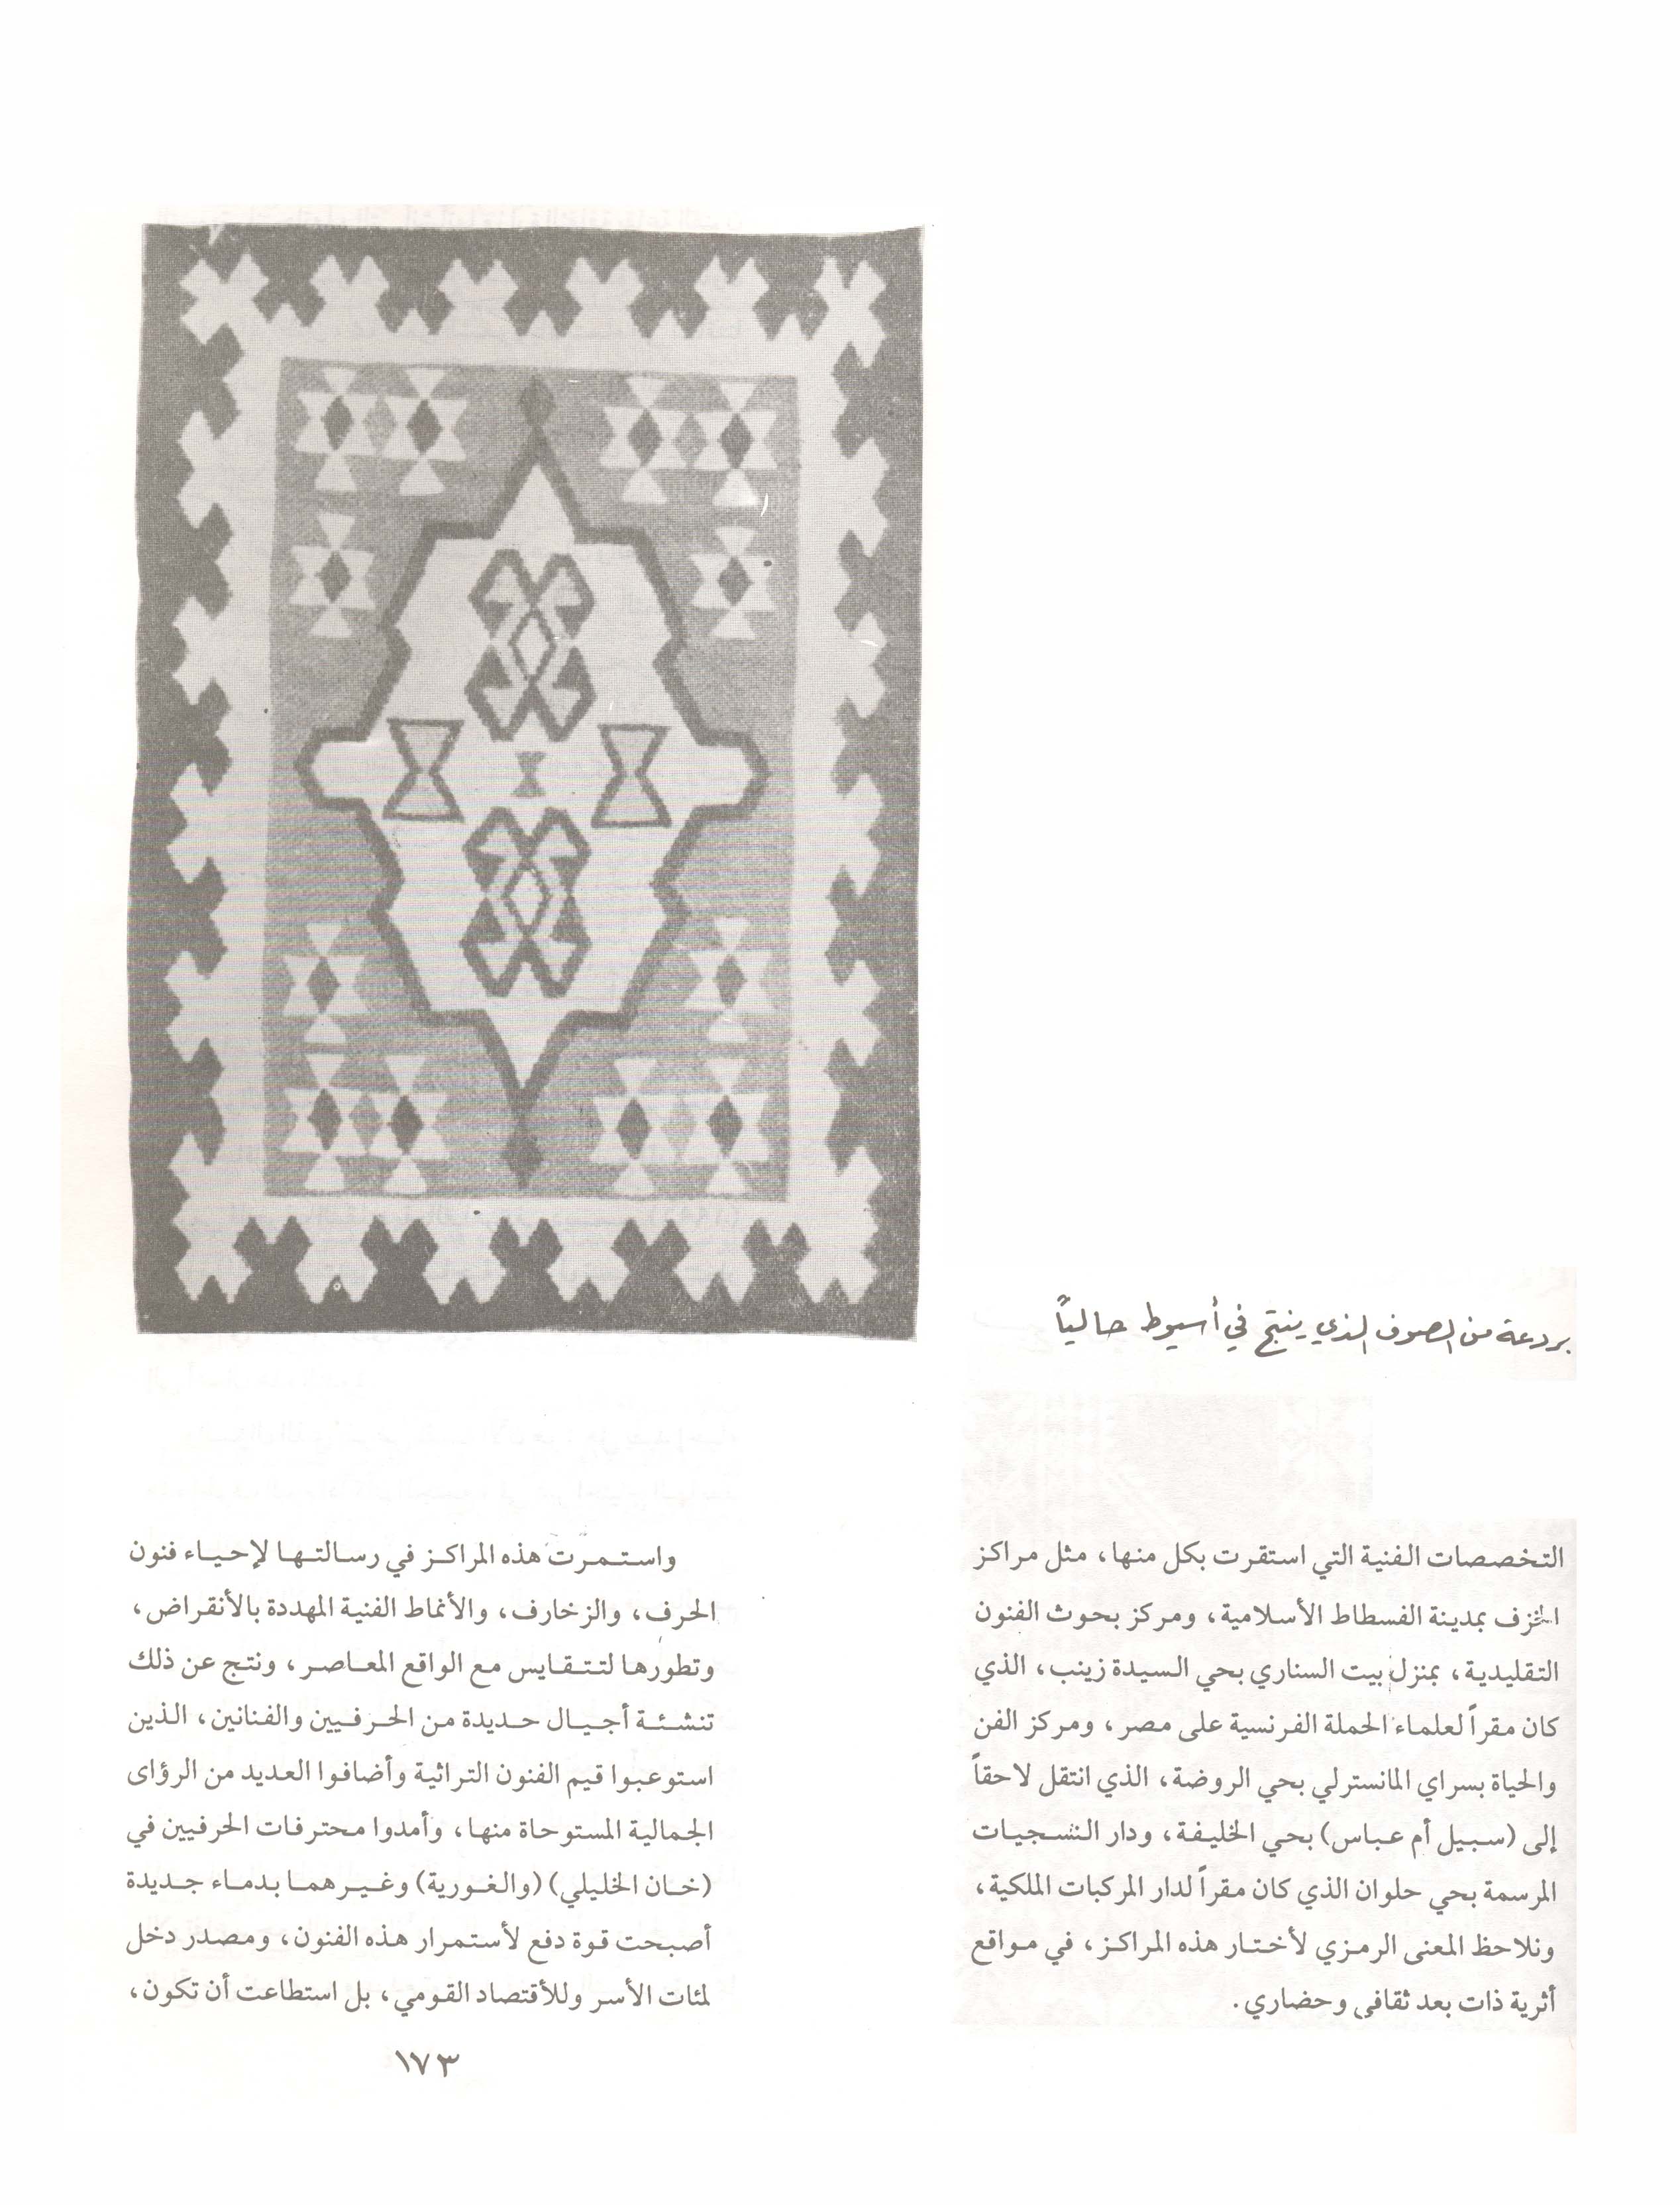 بردعة من الصوف الذي ينتج في أسيوط حالياً
التخصصات الفنية التي استقرت بكل منها، مثل مراكز
الخزف بمدينة الفسطاط الأسلامية، ومركز بحوث الفنون
التقليدية، بمنزل بيت السناري بحي السيدة زينب، الذي
كان مقراً لعلماء الحملة الفرنسية على مصر، ومركز الفن
والحياة بسراي المانسترلي بحي الروضة، الذي انتقل لاحقاً
إلى (سبيل أم عباس) بحي الخليفة، ودار النسجيات
المرسمة بحي حلوان الذي كان مقراً لدار المركبات الملكية،
ونلاحظ المعنى الرمزي لأختار هذه المراكز، في مواقع
أثرية ذات بعد ثقافي وحضاري.
واستمرت هذه المراكز في رسالتها لإحياء فنون
الحرف، والزخارف، والأنماط الفنية المهددة بالأنقراض،
وتطورها لتتقايس مع الواقع المعاصر، ونتج عن ذلك
تنشئة أجيال حديدة من الحرفيين والفنانين، الذين
استوعبوا قيم الفنون التراثية وأضافوا العديد من الرؤاى
الجمالية المستوحاة منها، وأمدوا محترفات الحرفيين في
(خان الخليلي) (والغورية) وغيرهما بدماء جديدة
أصبحت قوة دفع لأستمرار هذه الفنون، ومصدر دخل
لمئات الأسر وللأقتصاد القومي، بل استطاعت أن تكون،
١٧٣